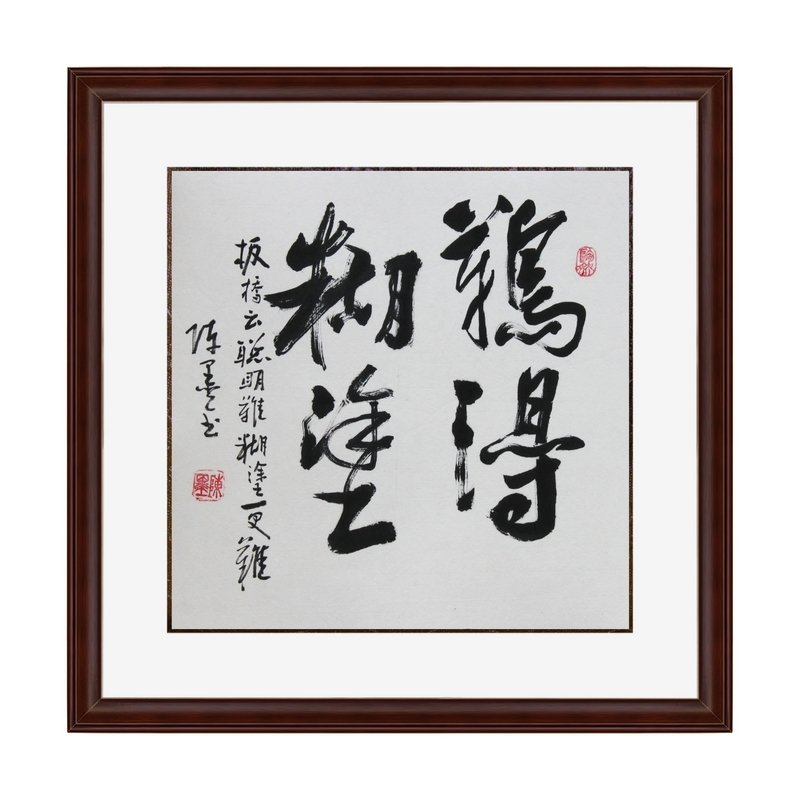 難得
糊塗
板橋云聰明難糊塗更難
陳墨書
陳墨